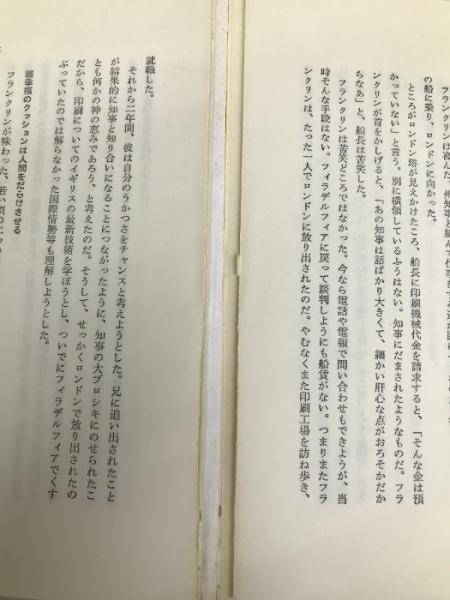 フランクリンは喜んだ。州知事と組んで仕事を
の船に乗り、ロンドンに向かった。
ところがロンドン塔が見えかけたころ、船長に印刷機械代金を請求すると、「そんな金は預
かっていない」と言う。別に横領しているふうはない。知事にだまされたようなものだ。フラ
ンクリンが首をかしげると、「あの知事は話ばかり大きくて、細かい肝心な点がおろそかだか
らなあ」と、船長は苦笑した。
フランクリンは苦笑どころではなかった。今なら電話や電報で問い合わせもできようが、当
時そんな手段はない。フィラデルフィアに戻って談判しようにも船賃がない。つまりまたフラ
ンクリンは、たった一人でロンドンに放り出されたのだ。やむなくまた印刷工場を訪ね歩き、
就職した。
それから二年間、彼は自分のうかつさをチャンスと考えようとした。兄に追い出されたこと
が結果的に知事と知り合いになることにつながったように、知事の大ブロシキにのせられたこ
とも何かの神の恵みであろう、と考えたのだ。そうして、せっかくロンドンで放り出されたの
だから、印刷についてのイギリスの最新技術を学ぼうとし、ついでにフィラデルフィアでくす
ぶっていたのでは解らなかった国際情勢等も理解しようとした。
幸福のクッションは人間をだらけさせる
フランクリンが味わった、若い頃の